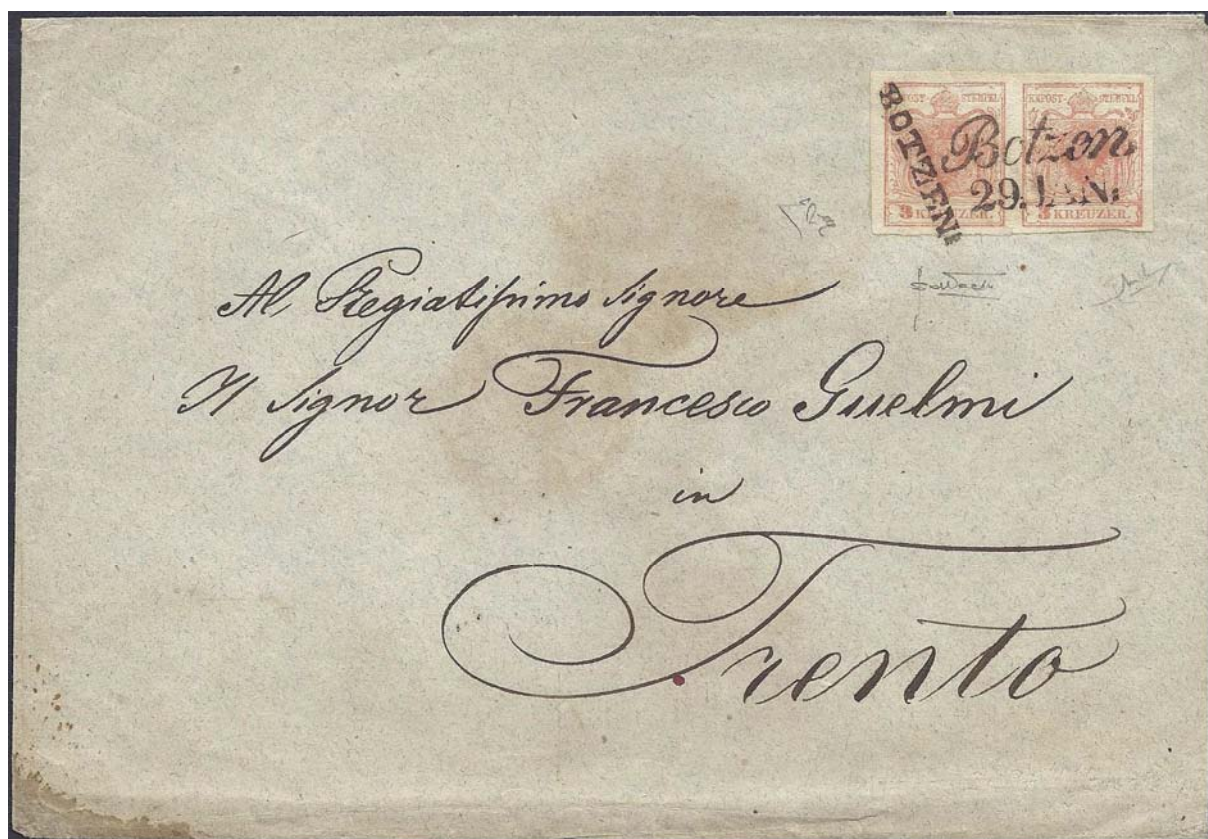 KKPOST-STEMPEL KKPOST-STEMPEL
BOTZEN
Botzen
29. JAN:
3 KREUZER. 3 KREUZER.
Al Pregiatissimo Signore
Il Signor Francesco Guelmi
in
Trento